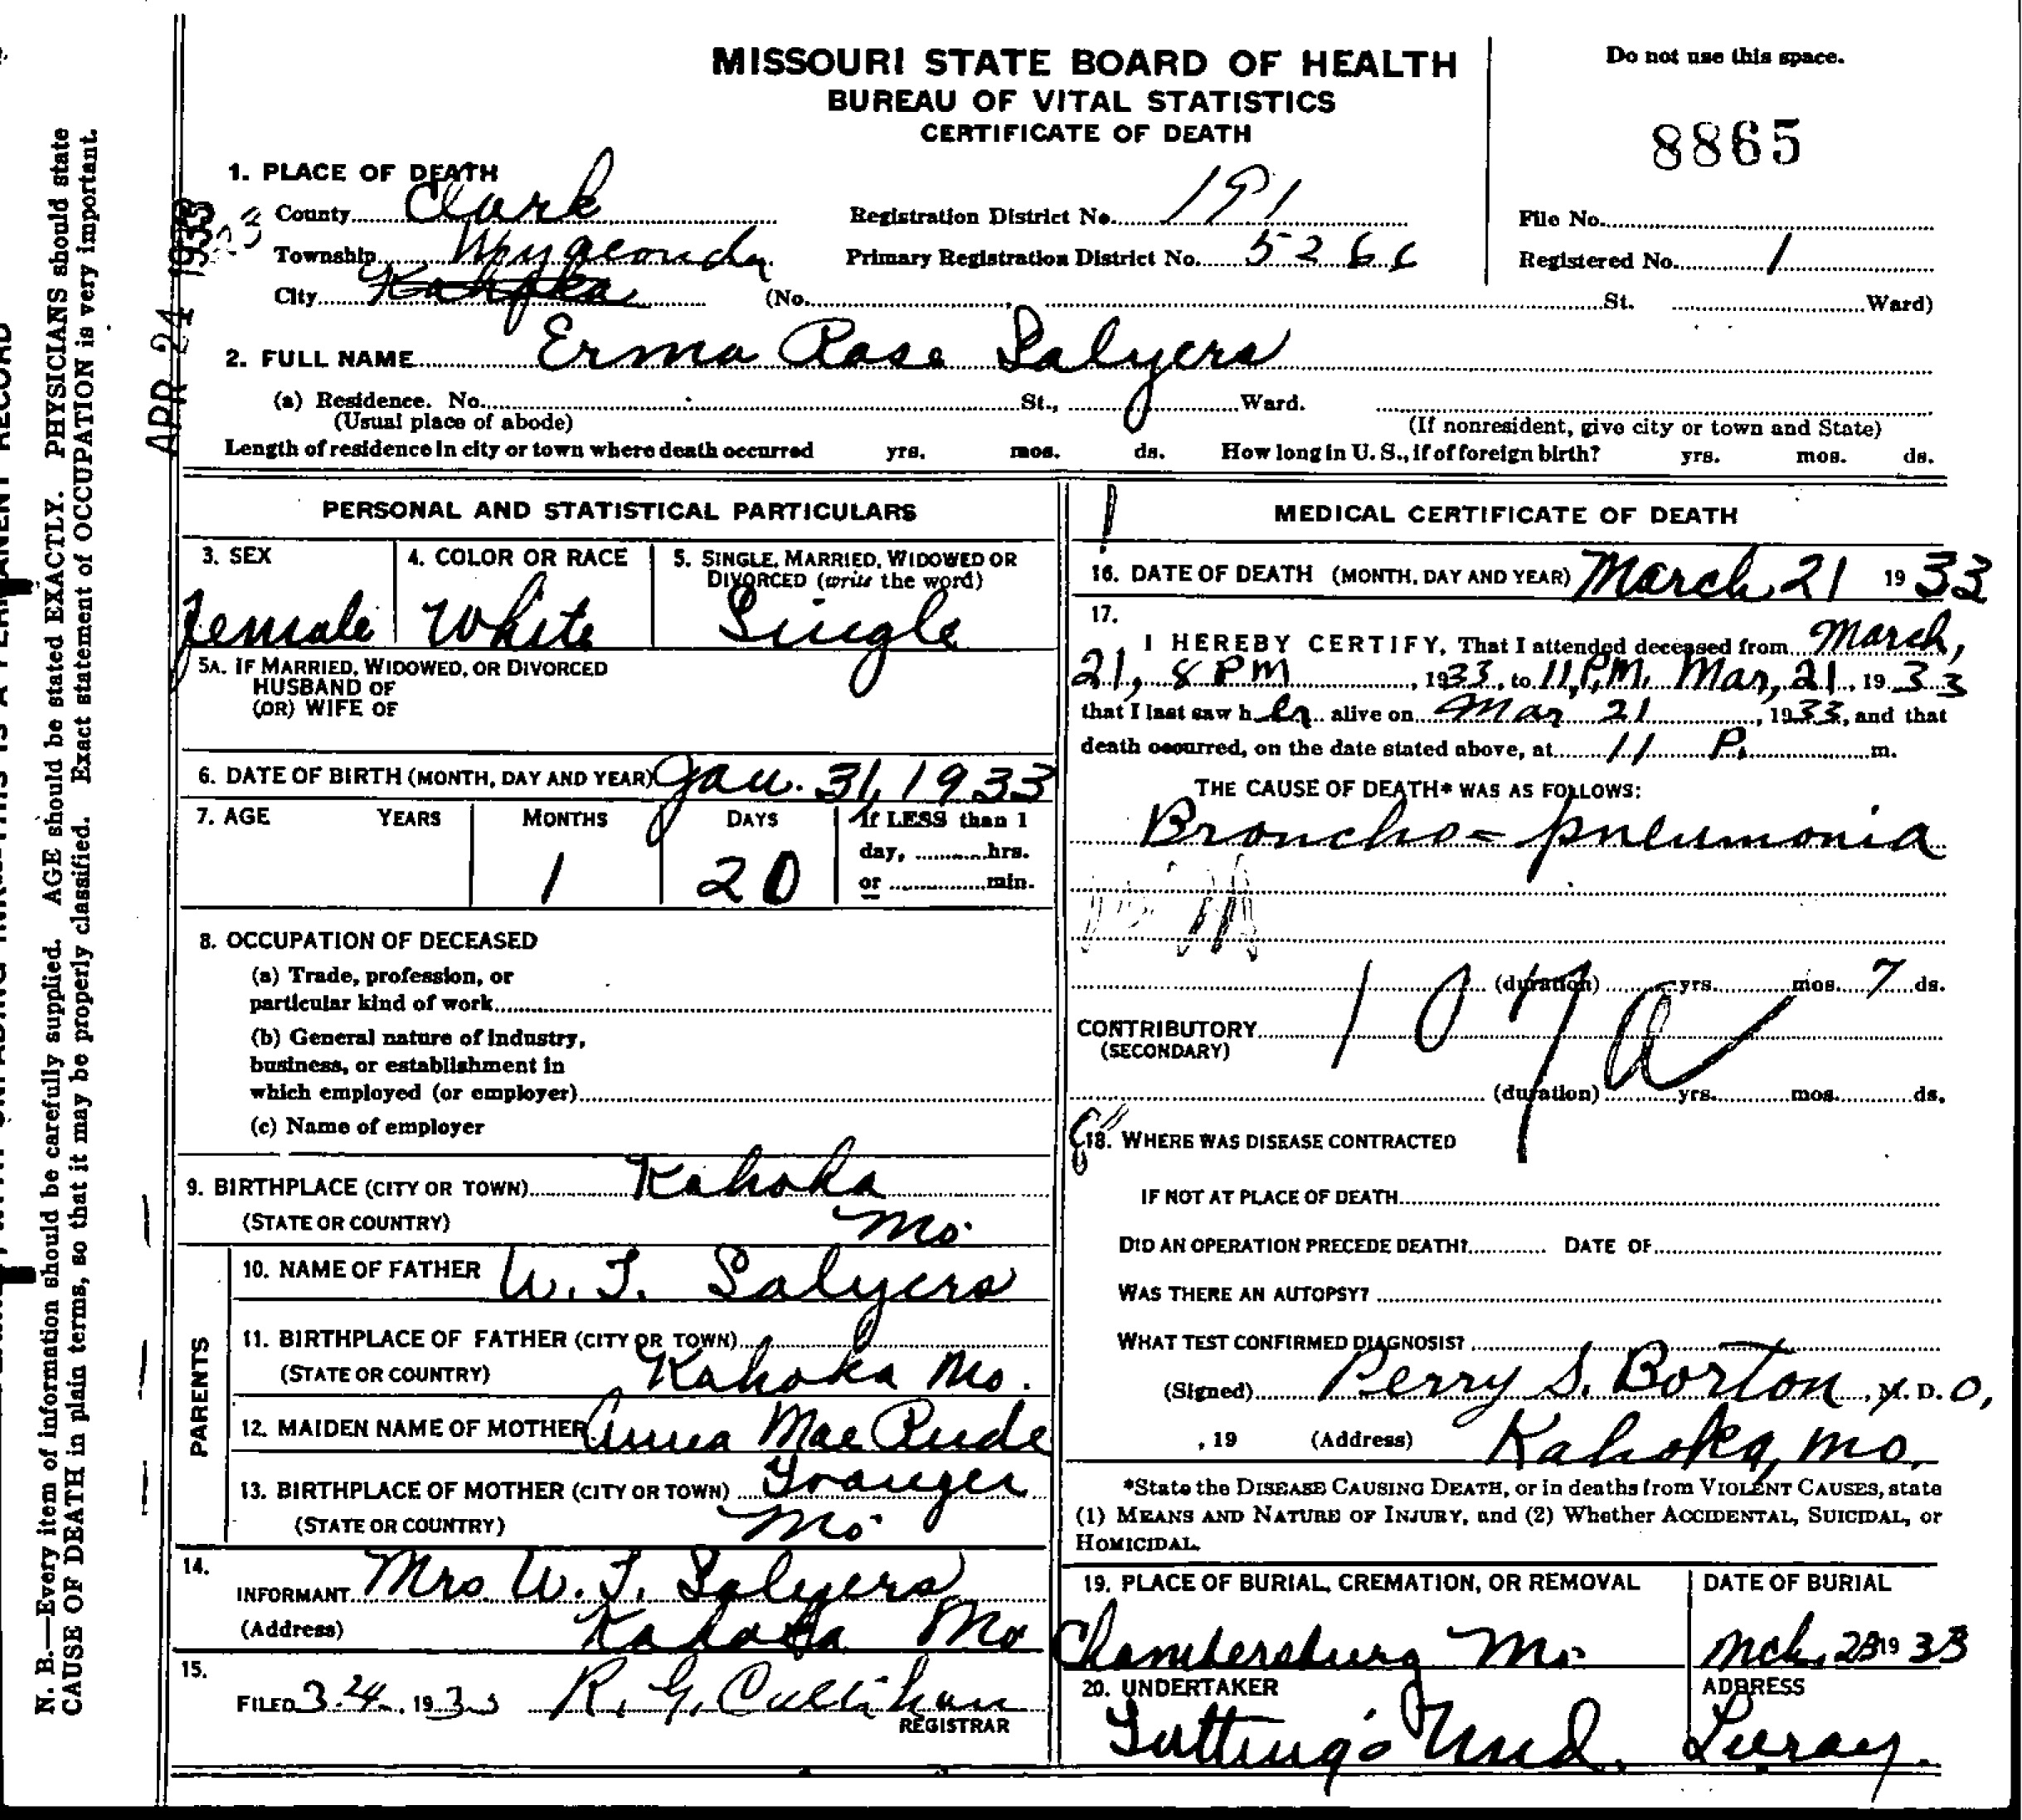 MISSOURI STATE BOARD OF HEALTH
BUREAU OF VITAL STATISTICS
CERTIFICATE OF DEATH
Do not use this space.
8865
1. PLACE OF DEATH
County Clark Registration District No. 191 File No.
Township Wyaconda Primary Registration District No. 5266 Registered No. 1
City Kahoka (No. St. Ward)
2. FULL NAME Erma Rose Salyers
(a) Residence. No. St., Ward.
(Usual place of abode) (If nonresident, give city or town and State)
Length of residence in city or town where death occurred yrs. mos. ds. How long in U. S., if of foreign birth? yrs. mos. ds.
APR 24 1933
N. B.—Every item of information should be carefully supplied. AGE should be stated EXACTLY. PHYSICIANS should state
CAUSE OF DEATH in plain terms, so that it may be properly classified. Exact statement of OCCUPATION is very important.
PERSONAL AND STATISTICAL PARTICULARS
3. SEX 4. COLOR OR RACE 5. SINGLE, MARRIED, WIDOWED OR
DIVORCED (write the word)
Female White Single
5A. IF MARRIED, WIDOWED, OR DIVORCED
HUSBAND OF
(OR) WIFE OF
6. DATE OF BIRTH (MONTH, DAY AND YEAR) Jan. 31, 1933
7. AGE YEARS MONTHS DAYS If LESS than 1
day, hrs.
or min.
1 20
8. OCCUPATION OF DECEASED
(a) Trade, profession, or
particular kind of work
(b) General nature of industry,
business, or establishment in
which employed (or employer)
(c) Name of employer
9. BIRTHPLACE (CITY OR TOWN) Kahoka
(STATE OR COUNTRY) Mo.
PARENTS
10. NAME OF FATHER W. F. Salyers
11. BIRTHPLACE OF FATHER (CITY OR TOWN)
(STATE OR COUNTRY) Kahoka Mo.
12. MAIDEN NAME OF MOTHER Anna Mae Rude
13. BIRTHPLACE OF MOTHER (CITY OR TOWN) Granger
(STATE OR COUNTRY) Mo.
14.
INFORMANT Mrs W. F. Salyers
(Address) Kahoka Mo
15.
FILED 3-24, 1933 R. G. Callihan
REGISTRAR
MEDICAL CERTIFICATE OF DEATH
16. DATE OF DEATH (MONTH, DAY AND YEAR) March 21 1933
17.
I HEREBY CERTIFY, That I attended deceased from March,
21, 8 PM, 1933, to 11, P.M. Mar, 21, 1933
that I last saw her alive on Mar 21, 1933, and that
death occurred, on the date stated above, at 11 P. m.
THE CAUSE OF DEATH* WAS AS FOLLOWS:
Broncho=pneumonia
(duration) yrs. mos. 7 ds.
107a
CONTRIBUTORY
(SECONDARY)
(duration) yrs. mos. ds.
18. WHERE WAS DISEASE CONTRACTED
IF NOT AT PLACE OF DEATH
DID AN OPERATION PRECEDE DEATH? DATE OF
WAS THERE AN AUTOPSY?
WHAT TEST CONFIRMED DIAGNOSIS?
(Signed) Perry S. Borton, M. D. O,
, 19 (Address) Kahoka, Mo.
*State the DISEASE CAUSING DEATH, or in deaths from VIOLENT CAUSES, state
(1) MEANS AND NATURE OF INJURY, and (2) Whether ACCIDENTAL, SUICIDAL, or
HOMICIDAL.
19. PLACE OF BURIAL, CREMATION, OR REMOVAL DATE OF BURIAL
Chambersburg Mo. Mch. 23 1933
20. UNDERTAKER ADDRESS
Und. Luray.